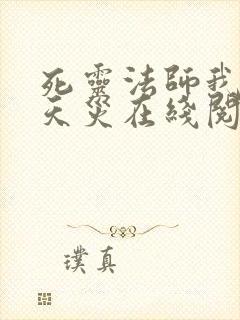 死靈法師我
天災在綫閱
璞真